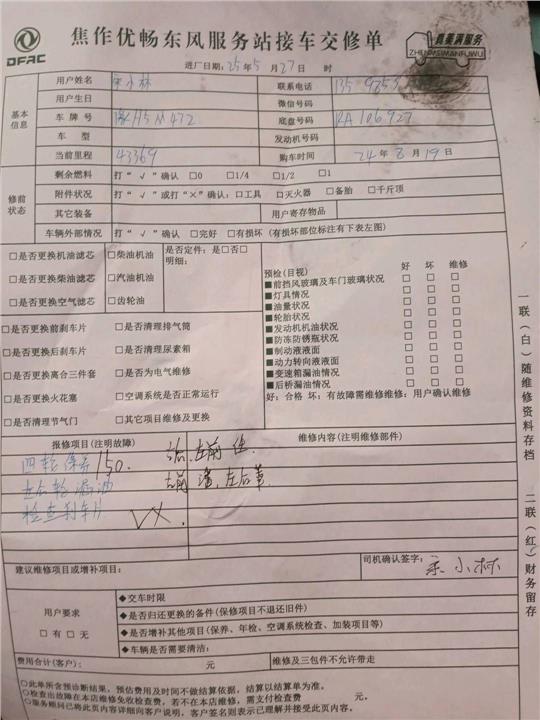 DFAC
焦作优畅东风服务站接车交修单
真集满服务
ZHENJIMANFUWU
进厂日期：25年5月27日 时
基本信息
用户姓名 宋小林 联系电话
用户生日 微信号码
车牌号 豫H5M472 底盘号码 RA106927
车型 发动机号码
当前里程 43369 购车时间 24年8月19日
修前状态
剩余燃料 打“√”确认 □0 □1/4 □1/2 □1
附件状况 打“√”或打“×”确认：□工具 □灭火器 □备胎 □千斤顶
其它装备 用户寄存物品
车辆外部情况 打“√”确认 □完好 □有损坏（有损坏部位标注有下表左图）
□是否更换机油滤芯 □柴油机油 是否定件：是□否□
明细：
□是否更换柴油滤芯 □汽油机油
□是否更换空气滤芯 □齿轮油
□是否更换前刹车片 □是否清理排气筒
□是否更换后刹车片 □是否清理尿素箱
□是否更换离合三件套 □是否为电气维修
□是否更换火花塞 □空调系统是否正常运行
□是否清理节气门 □其它项目维修及更换
预检(目视) 好 坏 维修
■前挡风玻璃及车门玻璃状况 □ □ □
■灯具情况 □ □ □
■油量状况 □ □ □
■轮胎状况 □ □ □
■发动机机油状况 □ □ □
■防冻防锈瓶状况 □ □ □
■制动液液面 □ □ □
■动力转向液液面 □ □ □
■变速箱漏油情况 □ □ □
■后桥漏油情况 □ □ □
好：合格 坏：有故障需维修维修：用户确认维修
报修项目(注明故障) 维修内容(注明维修部件)
四轮保养150.
左后轮漏油
检查刹车片
建议维修项目或增补项目：
司机确认签字： 宋小林
用户要求
□有 □无
◆交车时限
◆是否归还更换的备件(保修项目不退还旧件)
◆是否增补其他项目(保养、年检、空调系统检查、加装项目等)
◆车辆是否需要清洁：
费用合计(客户)： 元 维修及三包件不允许带走
○此单所含预诊断结果，预估费用及时间不做结算依据，结算以结算单为准。
○检查出故障在本店维修免收检查费，若不在本店维修，需支付检查费 元。
○服务顾问已将此页内容详细向客户说明，客户签名则表示已理解并接受此页内容。
一联（白）随维修资料存档
二联（红）财务留存